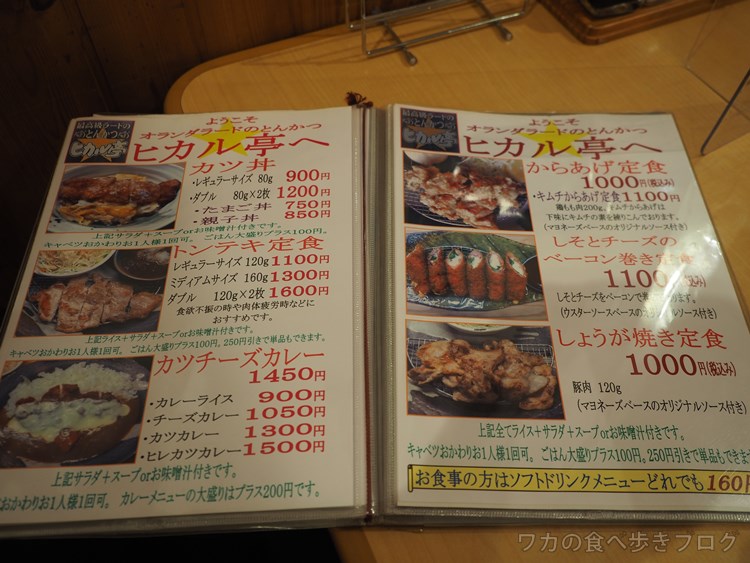 最高級ラードの
とんかつ
ヒカル亭
ようこそ
オランダラードのとんかつ
ヒカル亭へ
カツ丼
・レギュラーサイズ 80g 900円
・ダブル 80g×2枚 1200円
・たまご丼 750円
・親子丼 850円
上記サラダ+スープorお味噌汁付きです。
キャベツおかわりお1人様1回可。 ごはん大盛りプラス100円。
トンテキ定食
レギュラーサイズ 120g 1100円
ミディアムサイズ 160g 1300円
ダブル 120g×2枚 1600円
食欲不振の時や肉体疲労時などに
おすすめです。
上記ライス+サラダ+スープorお味噌汁付きです。
キャベツおかわりお1人様1回可。 ごはん大盛りプラス100円。250円引きで単品もできます。
カツチーズカレー
1450円
・カレーライス 900円
・チーズカレー 1050円
・カツカレー 1300円
・ヒレカツカレー 1500円
上記サラダ+スープorお味噌汁付きです。
おかわりお1人様1回可。 カレーメニューの大盛りはプラス200円です。
最高級ラードの
とんかつ
ヒカル亭
ようこそ
オランダラードのとんかつ
ヒカル亭へ
からあげ定食
1000円(税込み)
・キムチからあげ定食1100円
鶏もも肉200g、キムチからあげは
下味にキムチの素を練りこんでおります。
(マヨネーズベースのオリジナルソース付き)
しそとチーズの
ベーコン巻き定食
1100円(税込み)
しそとチーズをベーコンで巻
(ウスターソースベースのオリジナルソース付き)
しょうが焼き定食
1000円(税込み)
豚肉 120g
(マヨネーズベースのオリジナルソース付き)
上記全てライス+サラダ+スープorお味噌汁付きです。
キャベツおかわりお1人様1回可。 ごはん大盛りプラス100円。250円引きで単品もできます
お食事の方はソフトドリンクメニューどれでも160円
ワカの食べ歩きブログ